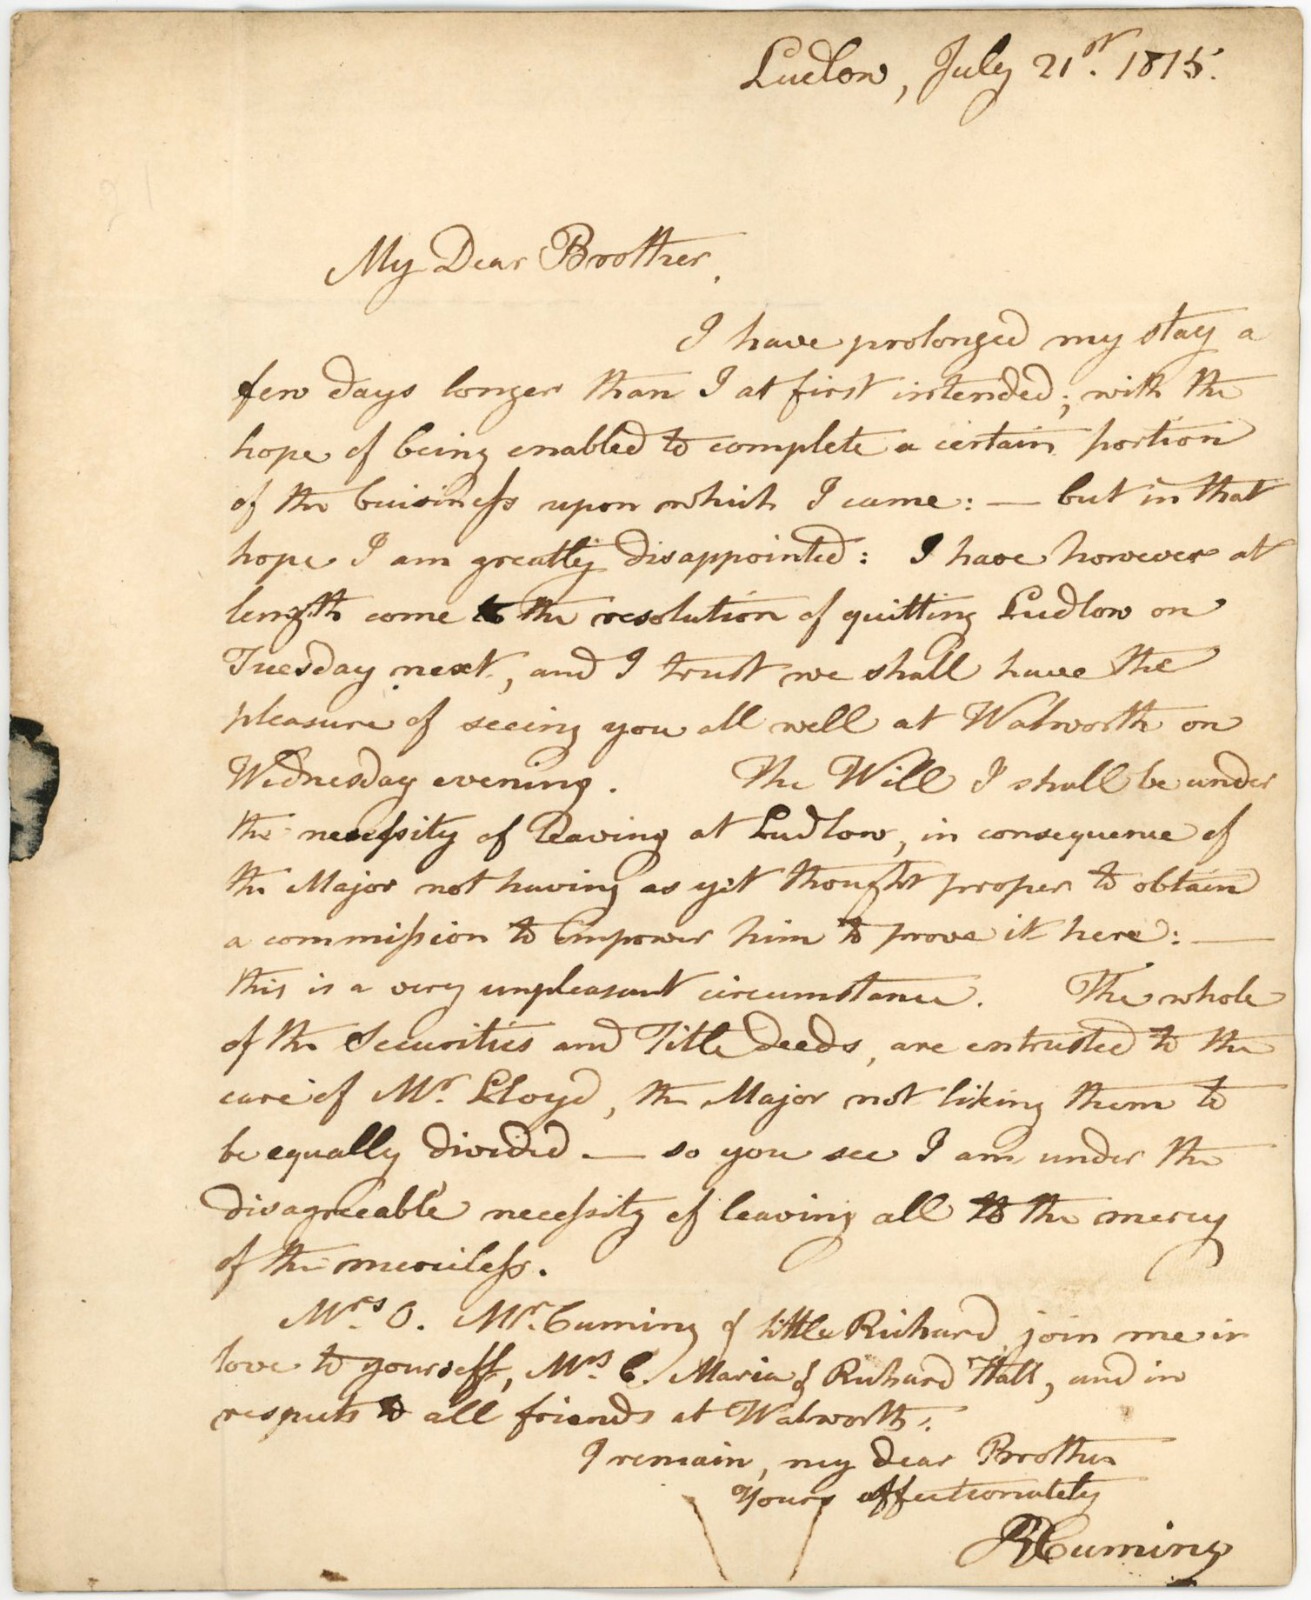 Ludlow, July 21st. 1815.
My Dear Brother,
I have prolonged my stay a
few days longer than I at first intended; with the
hope of being enabled to complete a certain portion
of the buisiness upon which I came: — but in that
hope I am greatly disappointed: I have however at
length come to the resolution of quitting Ludlow on
Tuesday next, and I trust we shall have the
pleasure of seeing you all well at Walworth on
Wednesday evening. The Will I shall be under
the necessity of leaving at Ludlow, in consequence of
the Major not having as yet thought proper to obtain
a commission to empower him to prove it here: —
this is a very unpleasant circumstance. The whole
of the Securities and Title deeds, are entrusted to the
care of Mr. Lloyd, the Major not liking them to
be equally divided — so you see I am under the
disagreeable necessity of leaving all to the mercy
of the merciless.
Mrs. O. Mr. Cuming & little Richard join me in
love to yourself, Mrs. C. Maria & Richard Hall, and in
respects to all friends at Walworth.
I remain, my dear Brother
Yours affectionately
R Cuming